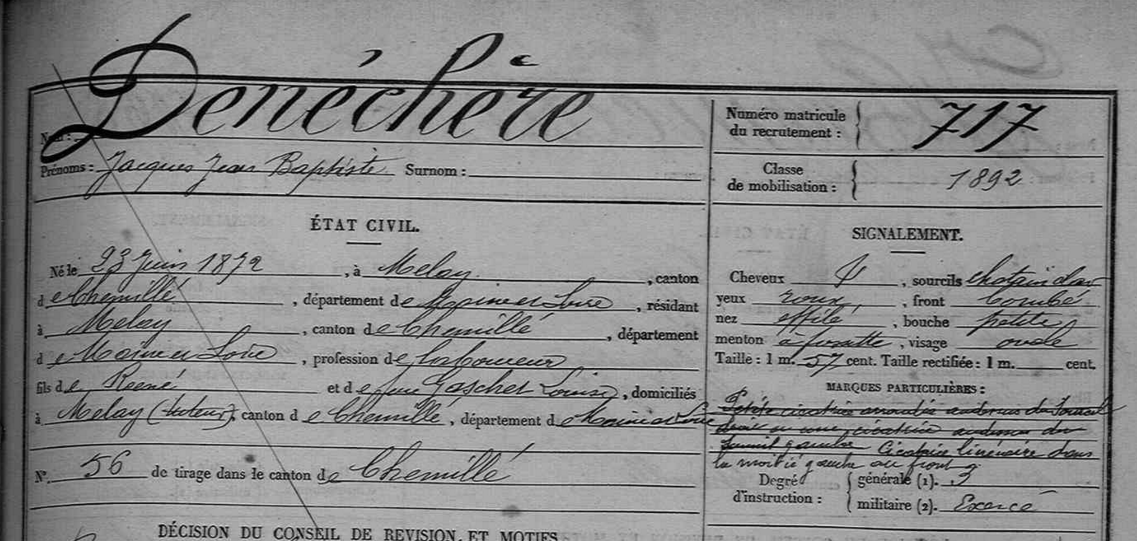 Denéchère
Nom :
Prénoms : Jacques Jean Baptiste Surnom :
Numéro matricule du recrutement : 717
Classe de mobilisation : 1892
ÉTAT CIVIL.
Né le 23 Juin 1872, à Melay, canton
de Chemillé, département de Maine et Loire, résidant
à Melay, canton de Chemillé, département
de Maine et Loire, profession de laboureur
fils de René et de feue Gaschet Louise, domiciliés
à Melay (tuteur), canton de Chemillé, département de Maine et Loire
N° 56 de tirage dans le canton de Chemillé
DÉCISION DU CONSEIL DE REVISION, ET MOTIFS
SIGNALEMENT.
Cheveux, sourcils chatain clair
yeux roux, front bombé
nez effilé, bouche petite
menton à fossette, visage ovale
Taille : 1 m. 57 cent. Taille rectifiée : 1 m. cent.
MARQUES PARTICULIÈRES :
Petite cicatrice au dessus du sourcil
une cicatrice au dessus du
sourcil gauche Cicatrice linéaire dans
la moitié gauche du front
Degré d'instruction : générale (1). 3
militaire (2). Exercé